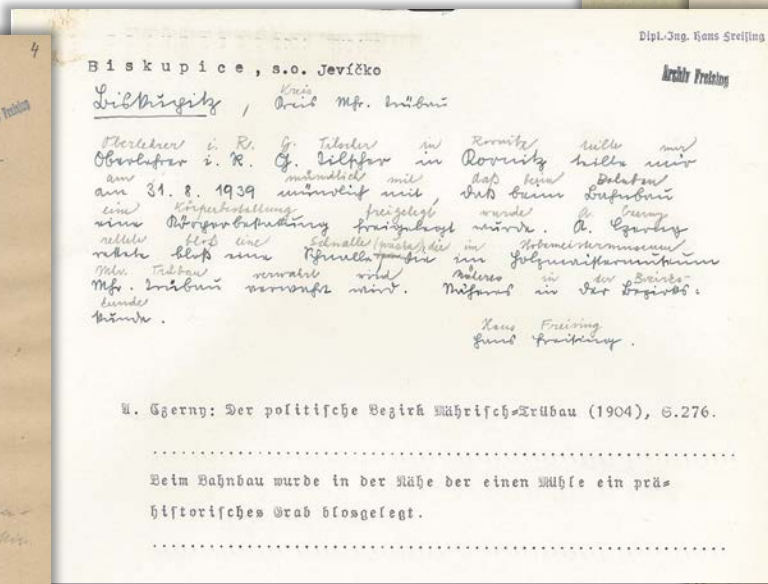 4
Dipl.-Ing. Hans Freising
Archiv Freising
Biskupice, s.o. Jevíčko
Kreis
Biskupitz, Kreis Mhr. Trübau
Oberlehrer i. R. G. Tilscher in Kornitz teilte mir
Oberlehrer i. R. G. Tilscher in Kornitz teilte mir
am mündlich mit daß beim
am 31. 8. 1939 mündlich mit, daß beim Bahnbau
eine Körperbestattung freigelegt wurde A. Czerny
eine Körperbestattung freigelegt wurde. A. Czerny
rettete bloß eine Schnalle die im
rettete bloß eine Schnalle die im Holzmaistermuseum
Mhr. Trübau verwahrt wird Näheres in der Bezirks-
Mhr. Trübau verwahrt wird. Näheres in der Bezirks-
kunde
kunde.
Hans Freising
Hans Freising.
A. Czerny: Der politische Bezirk Mährisch-Trübau (1904), S.276.
Beim Bahnbau wurde in der Nähe der einen Mühle ein prä-
historisches Grab blosgelegt.